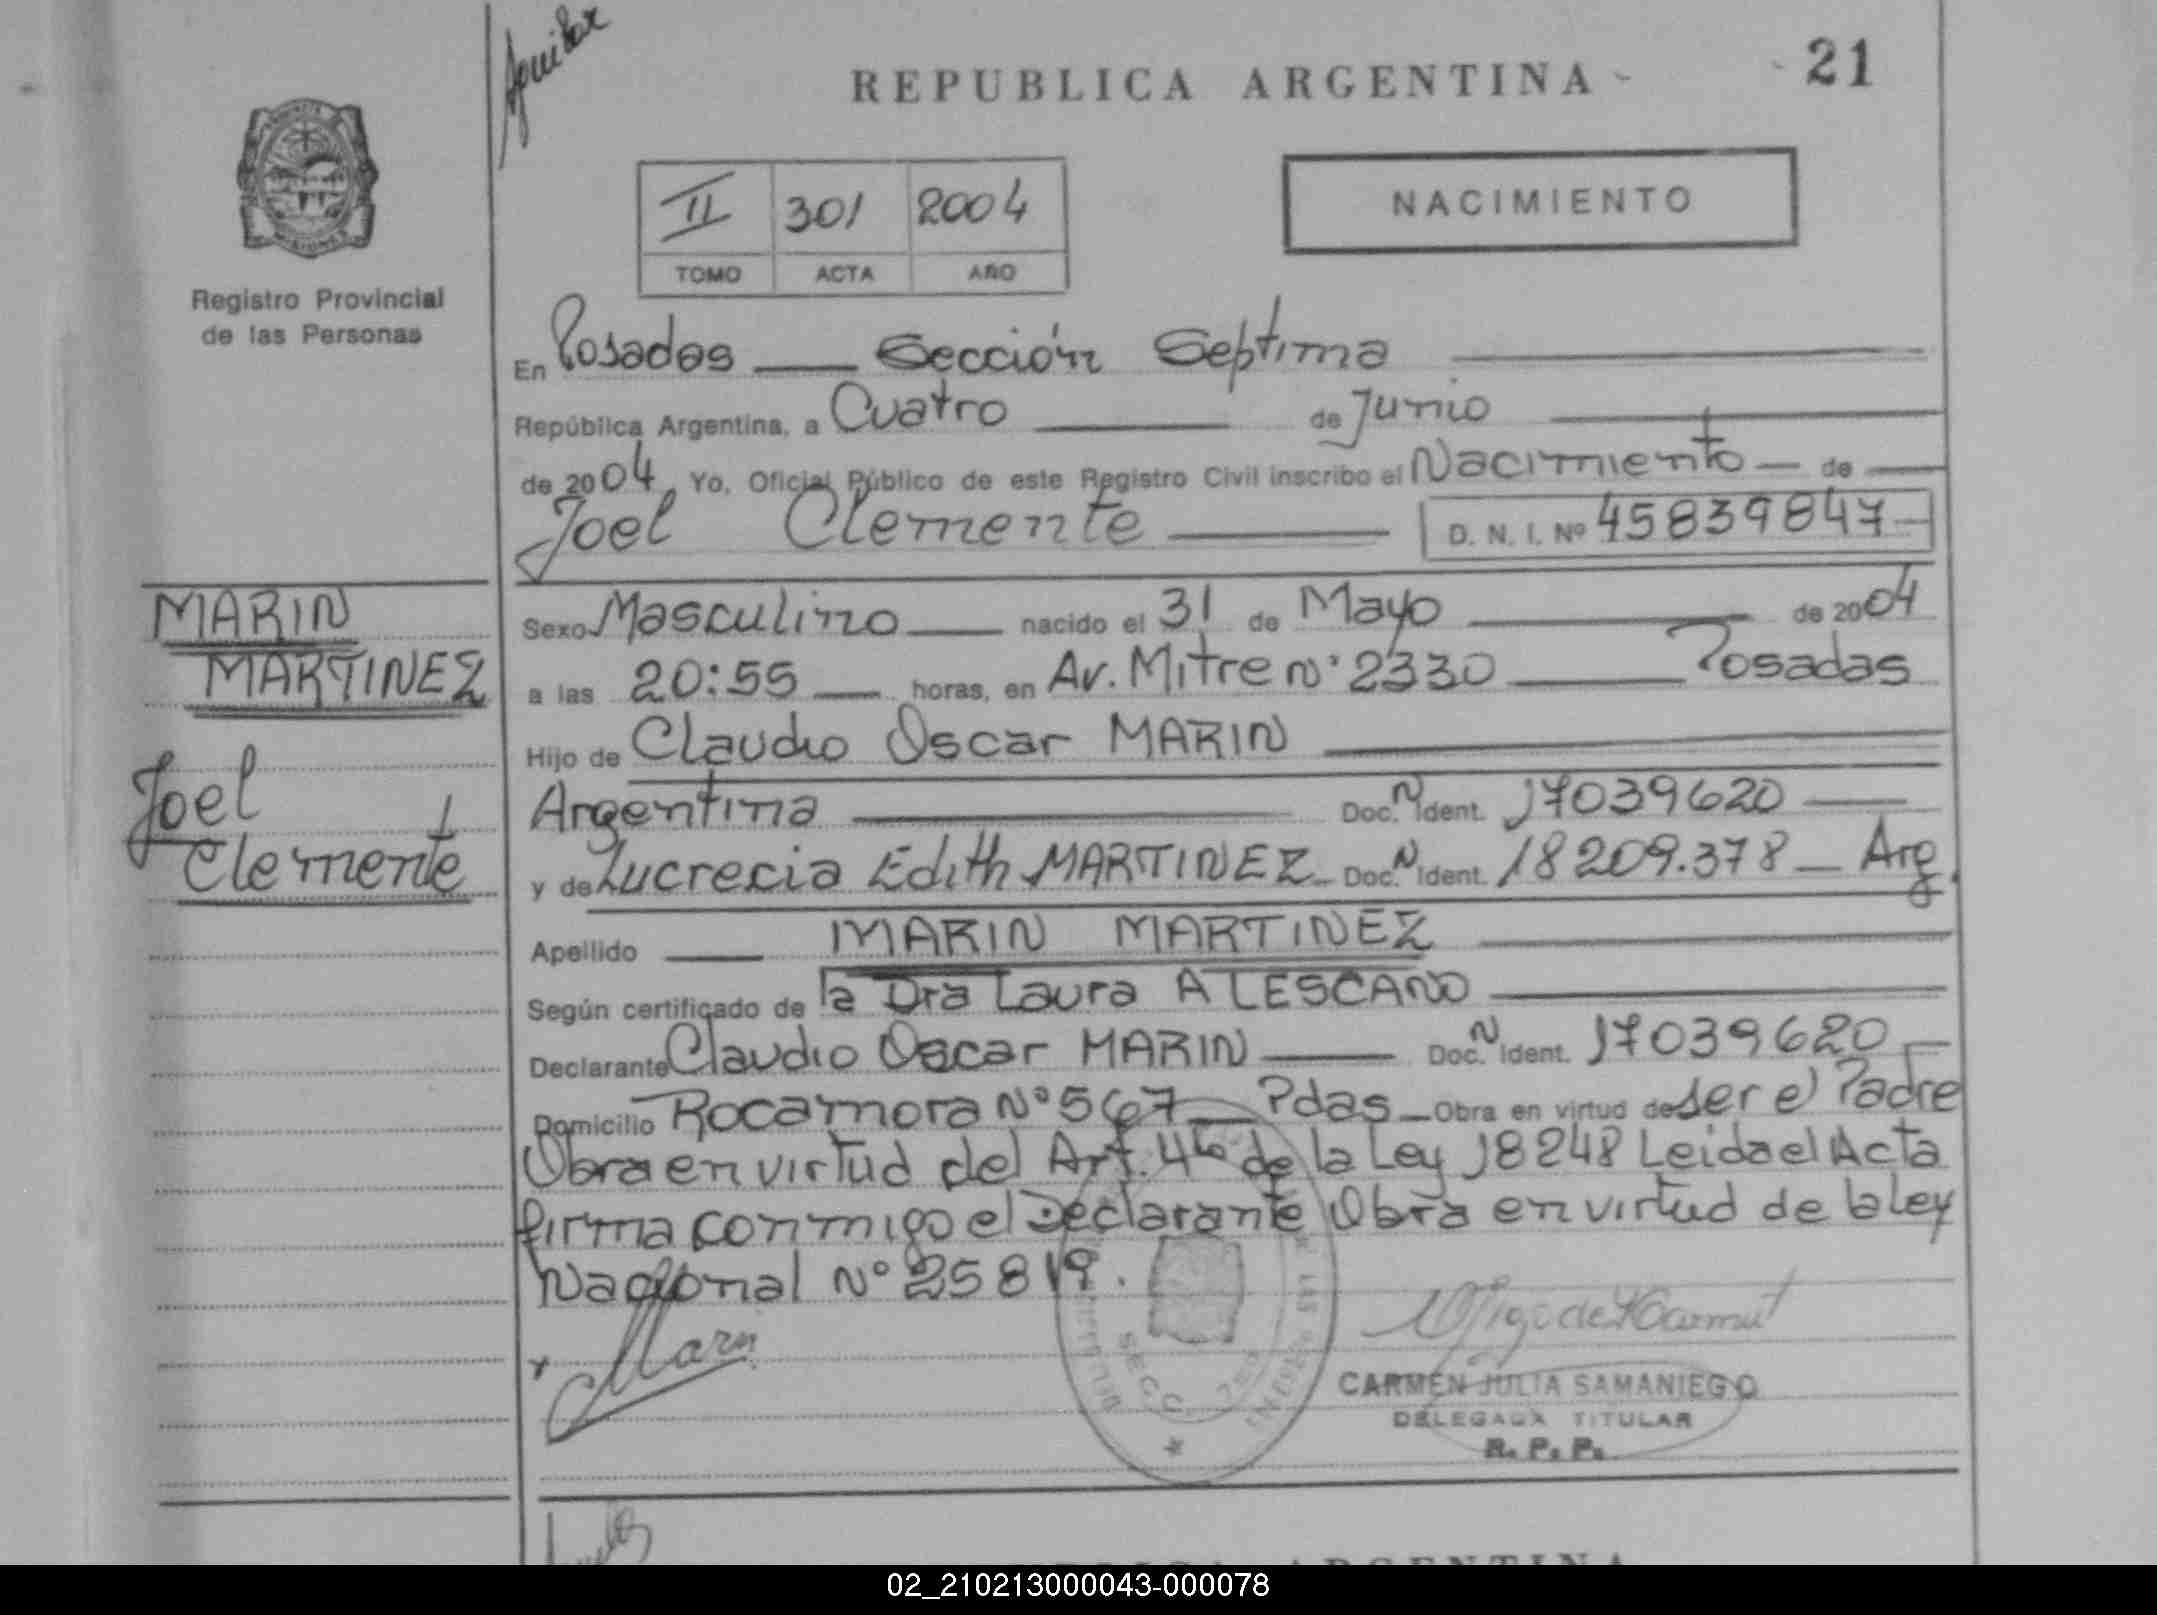 Aguilar
REPUBLICA ARGENTINA
21
NACIMIENTO
II 301 2004
TOMO ACTA AÑO
MISIONES
Registro Provincial
de las Personas
En Posadas Sección Septima
República Argentina, a Cuatro de Junio
de 2004, Yo, Oficial Público de este Registro Civil inscribo el Nacimiento de
Joel Clemente D. N. I. Nº 45839847
MARIN
MARTINEZ
Joel
Clemente
Sexo Masculino nacido el 31 de Mayo de 2004
a las 20:55 horas, en Av. Mitre Nº 2330 Posadas
Hijo de Claudio Oscar MARIN
Argentina Doc. N Ident. 17039620
y de Lucrecia Edith MARTINEZ Doc. N Ident. 18209.378 Arg.
Apellido MARIN MARTINEZ
Según certificado de la Dra Laura ALESCANO
Declarante Claudio Oscar MARIN Doc. N Ident. 17039620
Domicilio Rocamora Nº 567 Pdas Obra en virtud de ser el Padre
Obra en virtud del Art. 4to de la Ley 18248 Leida el Acta
firma conmigo el Declarante Obra en virtud de la ley
Nacional Nº 25819.
x Marin
SECC. 7
CARMEN JULIA SAMANIEGO
DELEGADA TITULAR
R. P. P.
REPUBLICA ARGENTINA
02_210213000043-000078